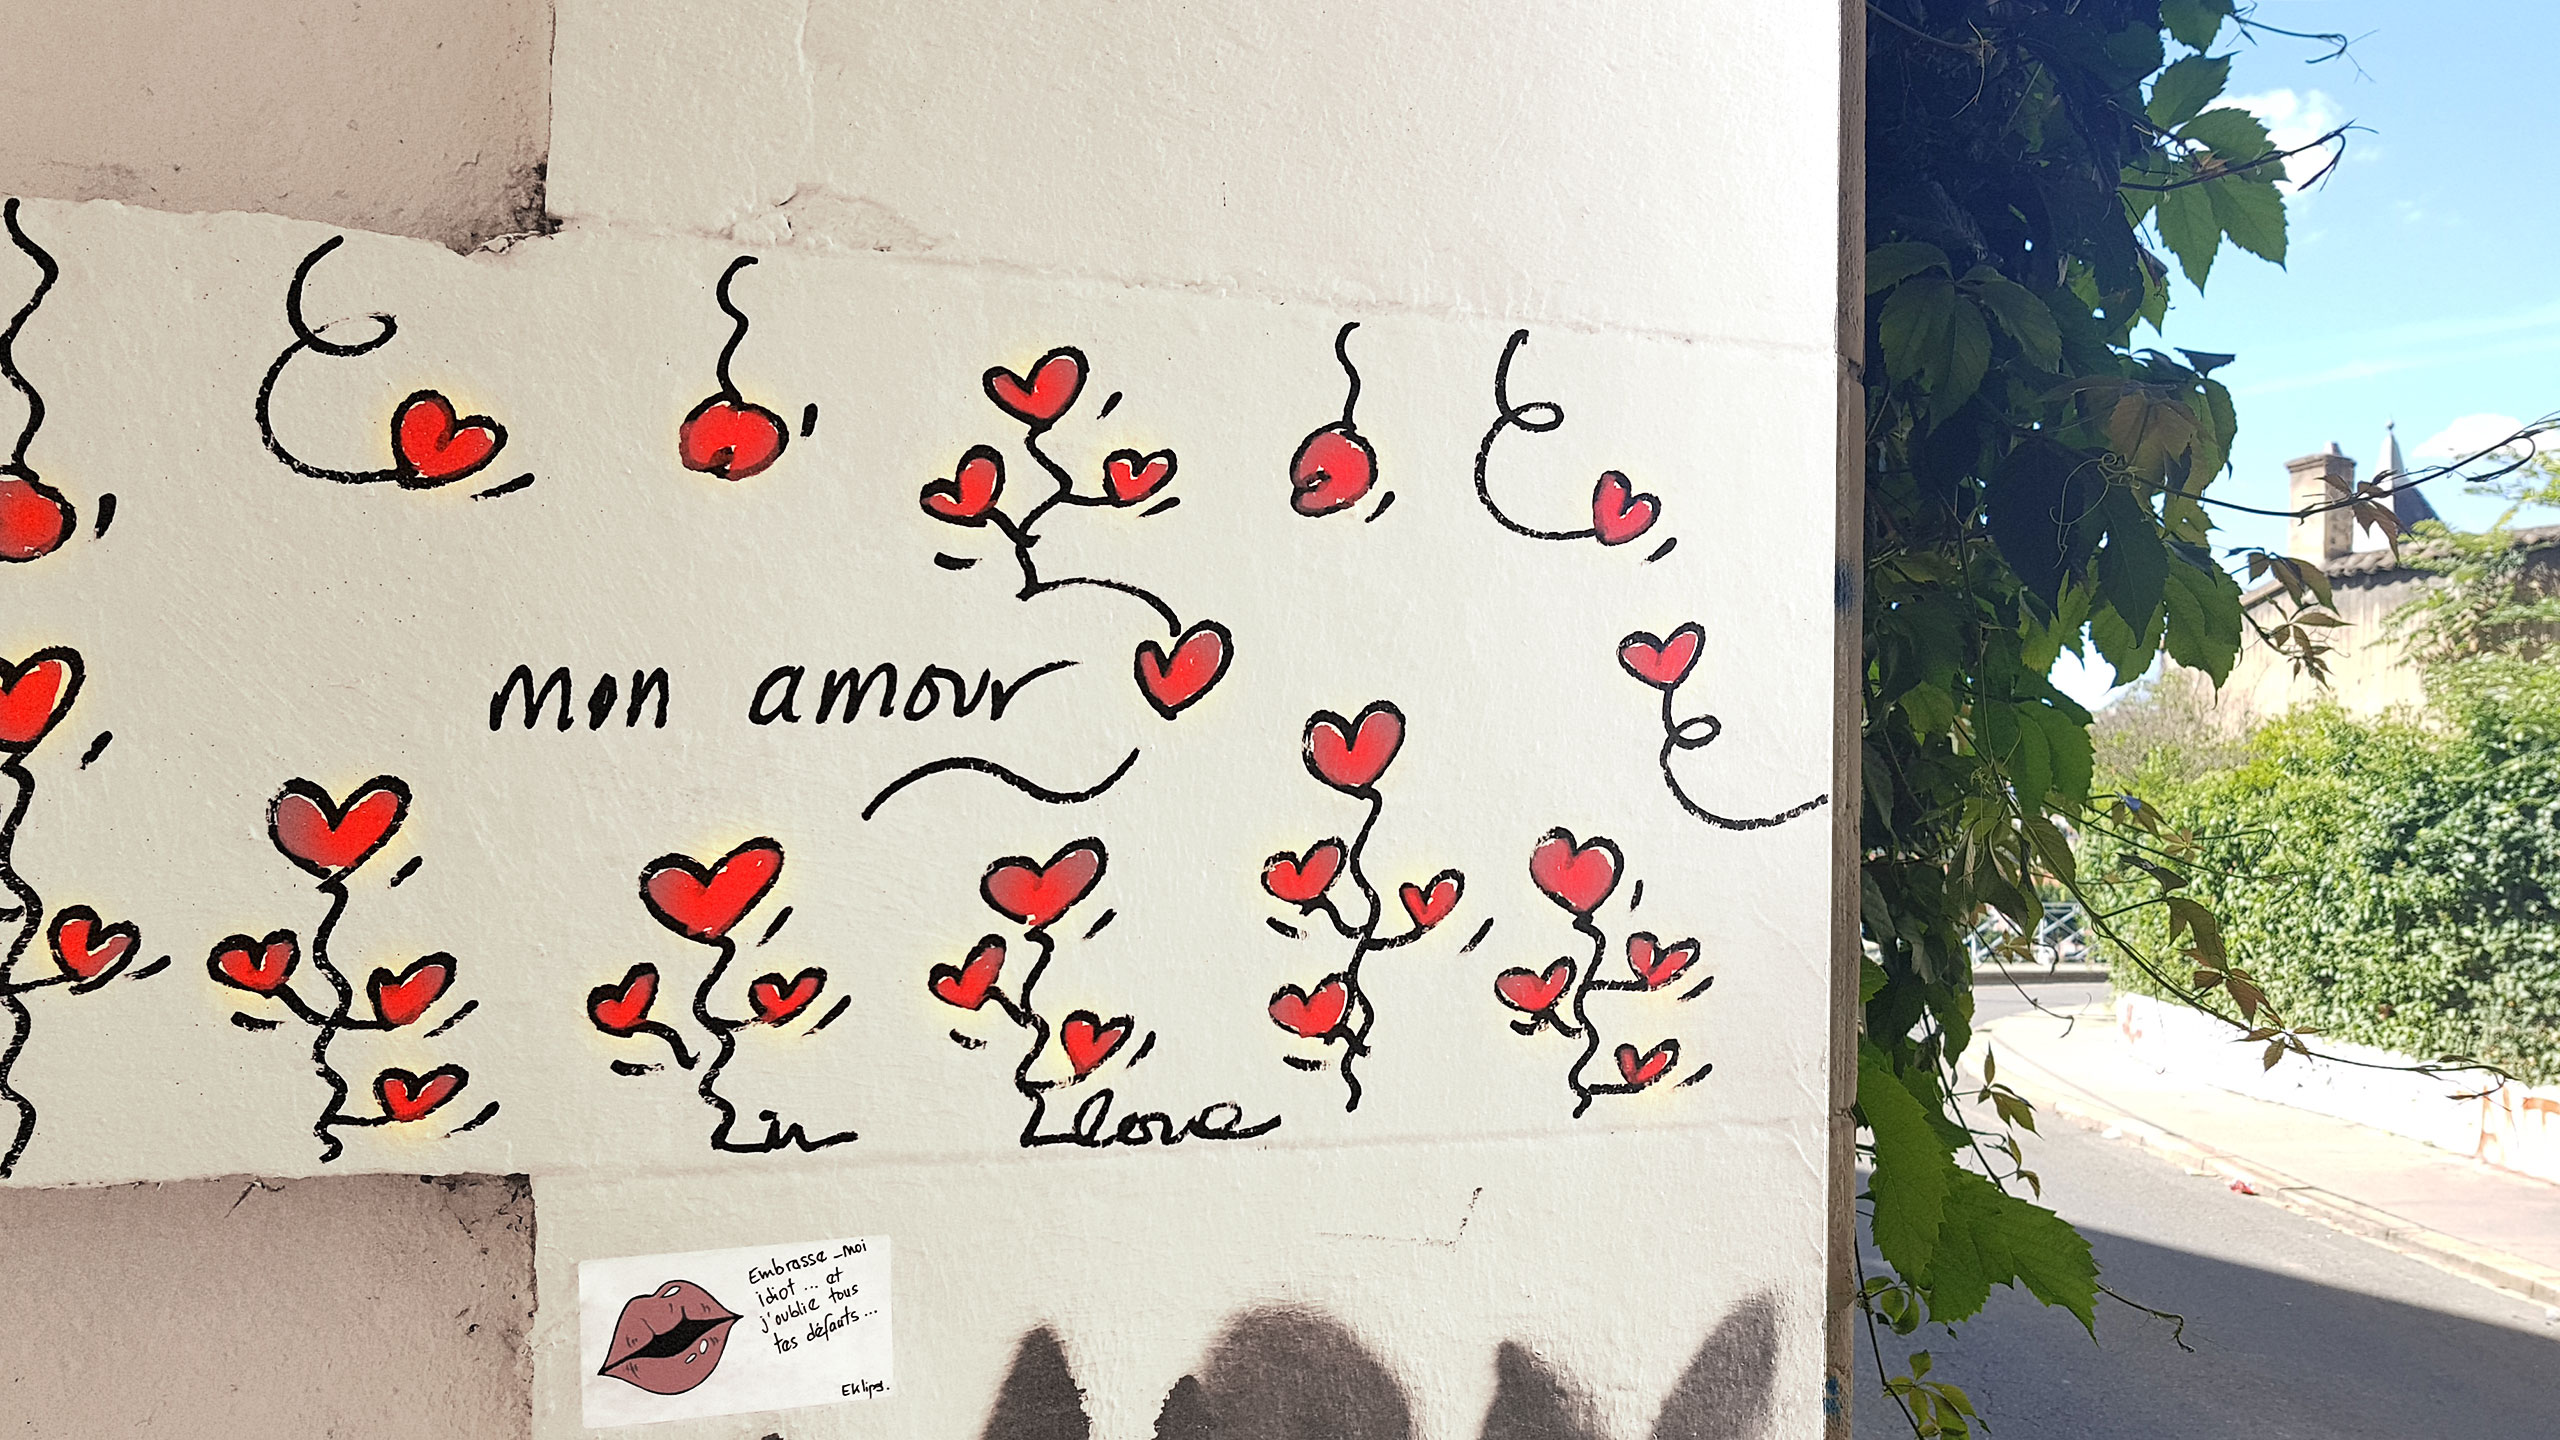 mon amour
in love
Embrasse-moi
idiot... et
j'oublie tous
tes défauts...